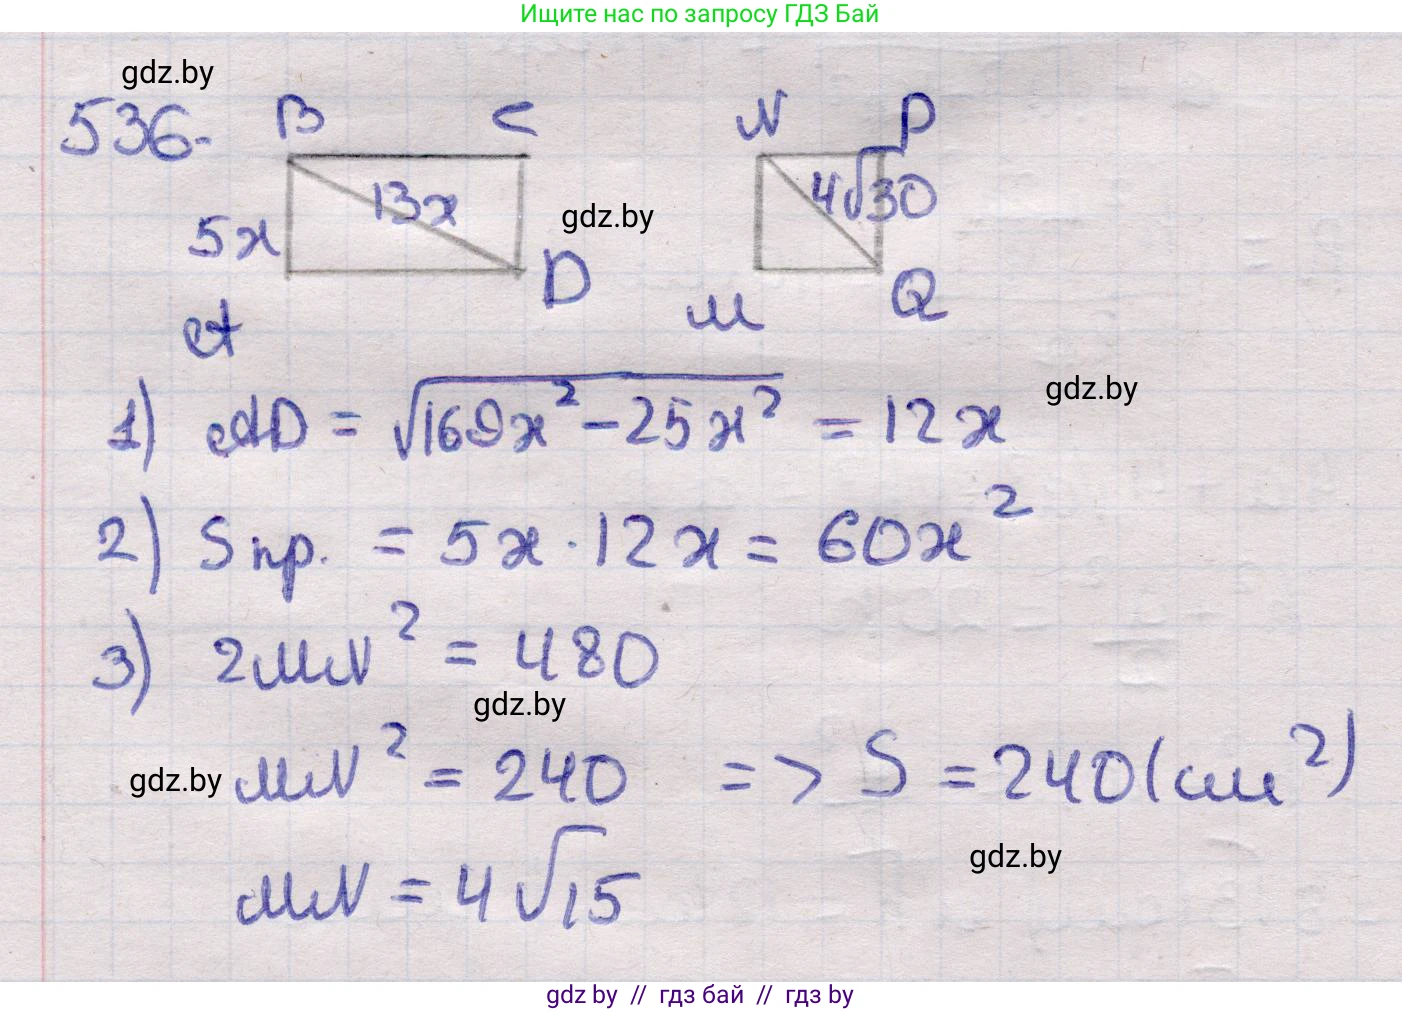 Ищите нас по запросу ГДЗ Бай
gdz.by
536.
B C
N P
13x
4√30
5x
gdz.by
A D
M Q
1) AD = √169x² - 25x² = 12x
gdz.by
2) Sпр. = 5x · 12x = 60x²
3) 2MN² = 480
gdz.by
MN² = 240 => S = 240 (см²)
gdz.by
gdz.by
MN = 4√15
gdz by // гдз бай // гдз by